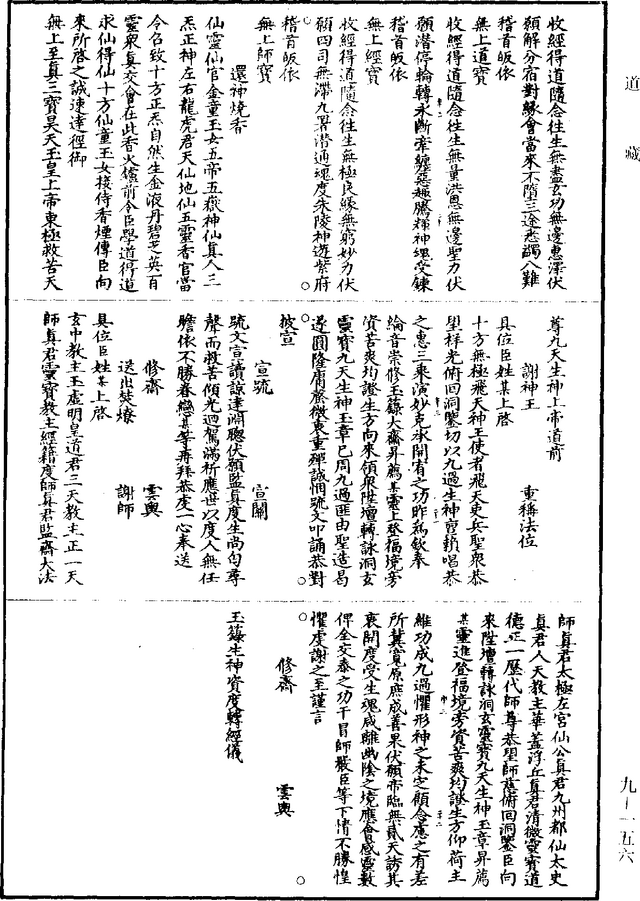 道藏
收經得道隨念往生無盡玄功無邊惠澤伏
願解分宿對緣會當來不墮三途悉蠲八難
稽首皈依
無上道寶
收經得道隨念往生無量洪恩無邊聖力伏
願潛停輪轉永斷牽纏惡趣騰輝神魂受鍊
稽首皈依
無上經寶
收經得道隨念往生無極良緣無窮妙力伏
願四司無滯九署潛通魂度朱陵神遊紫府
稽首皈依
無上師寶
還神燒香
仙靈仙官金童玉女五帝五嶽神仙真人三
炁正神左右龍虎君天仙地仙五靈香官當
令召致十方正炁自然生金液丹碧芝英百
靈眾真交會在此香火爐前令臣學道得道
求仙得仙十方仙童玉女接侍香煙傳臣向
來所啓之誠速達徑御
無上至真三寶昊天玉皇上帝東極救苦天
尊九天生神上帝道前
謝神王 重稱法位
具位臣姓某上啓
十方無極飛天神王使者飛天吏兵聖眾恭
望祥光俯回洞鑒切以九過生神實賴唱恭
之惠三乘演妙克承開宥之功昨為欽奉
綸音崇修玉籙大齋昇薦某靈上登福境旁
資苦爽均證生方向來領眾陞壇轉詠洞玄
靈寶九天生神玉章已周九過匪由聖造曷
遂圓隆膚麼微衷重殫誠悃疏文叩誦恭對
披宣
宣疏 宣關
疏文宣讀諒達淵聰伏願監真度生尚匄尋
聲而救苦傾光迴駕滿祈應世以度人無任
瞻依不勝眷戀某等再拜恭虔一心奉送
修齋 雲輿
送出焚燎 謝師
具位臣姓某上啓
玄中教主玉虛明皇道君三天教主正一天
師真君靈寶教主經籍度師真君監齋大法
師真君太極左宮仙公真君九州都仙太史
真君人天教主華蓋浮丘真君清微靈寶道
德正一歷代師尊恭望師慈俯回洞鑒臣向
來陞壇轉詠洞玄靈寶九天生神玉章昇薦
某靈進登福境旁資苦爽均證生方仰荷主
維功成九過懼形神之未定顧念慮之有差
所冀寬原庶成善果伏願帝臨無貳天訪其
衷開度受生魂咸離幽陰之境應會感靈數
俾全交泰之功干冒師嚴臣等下情不勝惶
懼虔謝之至謹言
修齋 雲輿
玉籙生神資度轉經儀
九—一五六